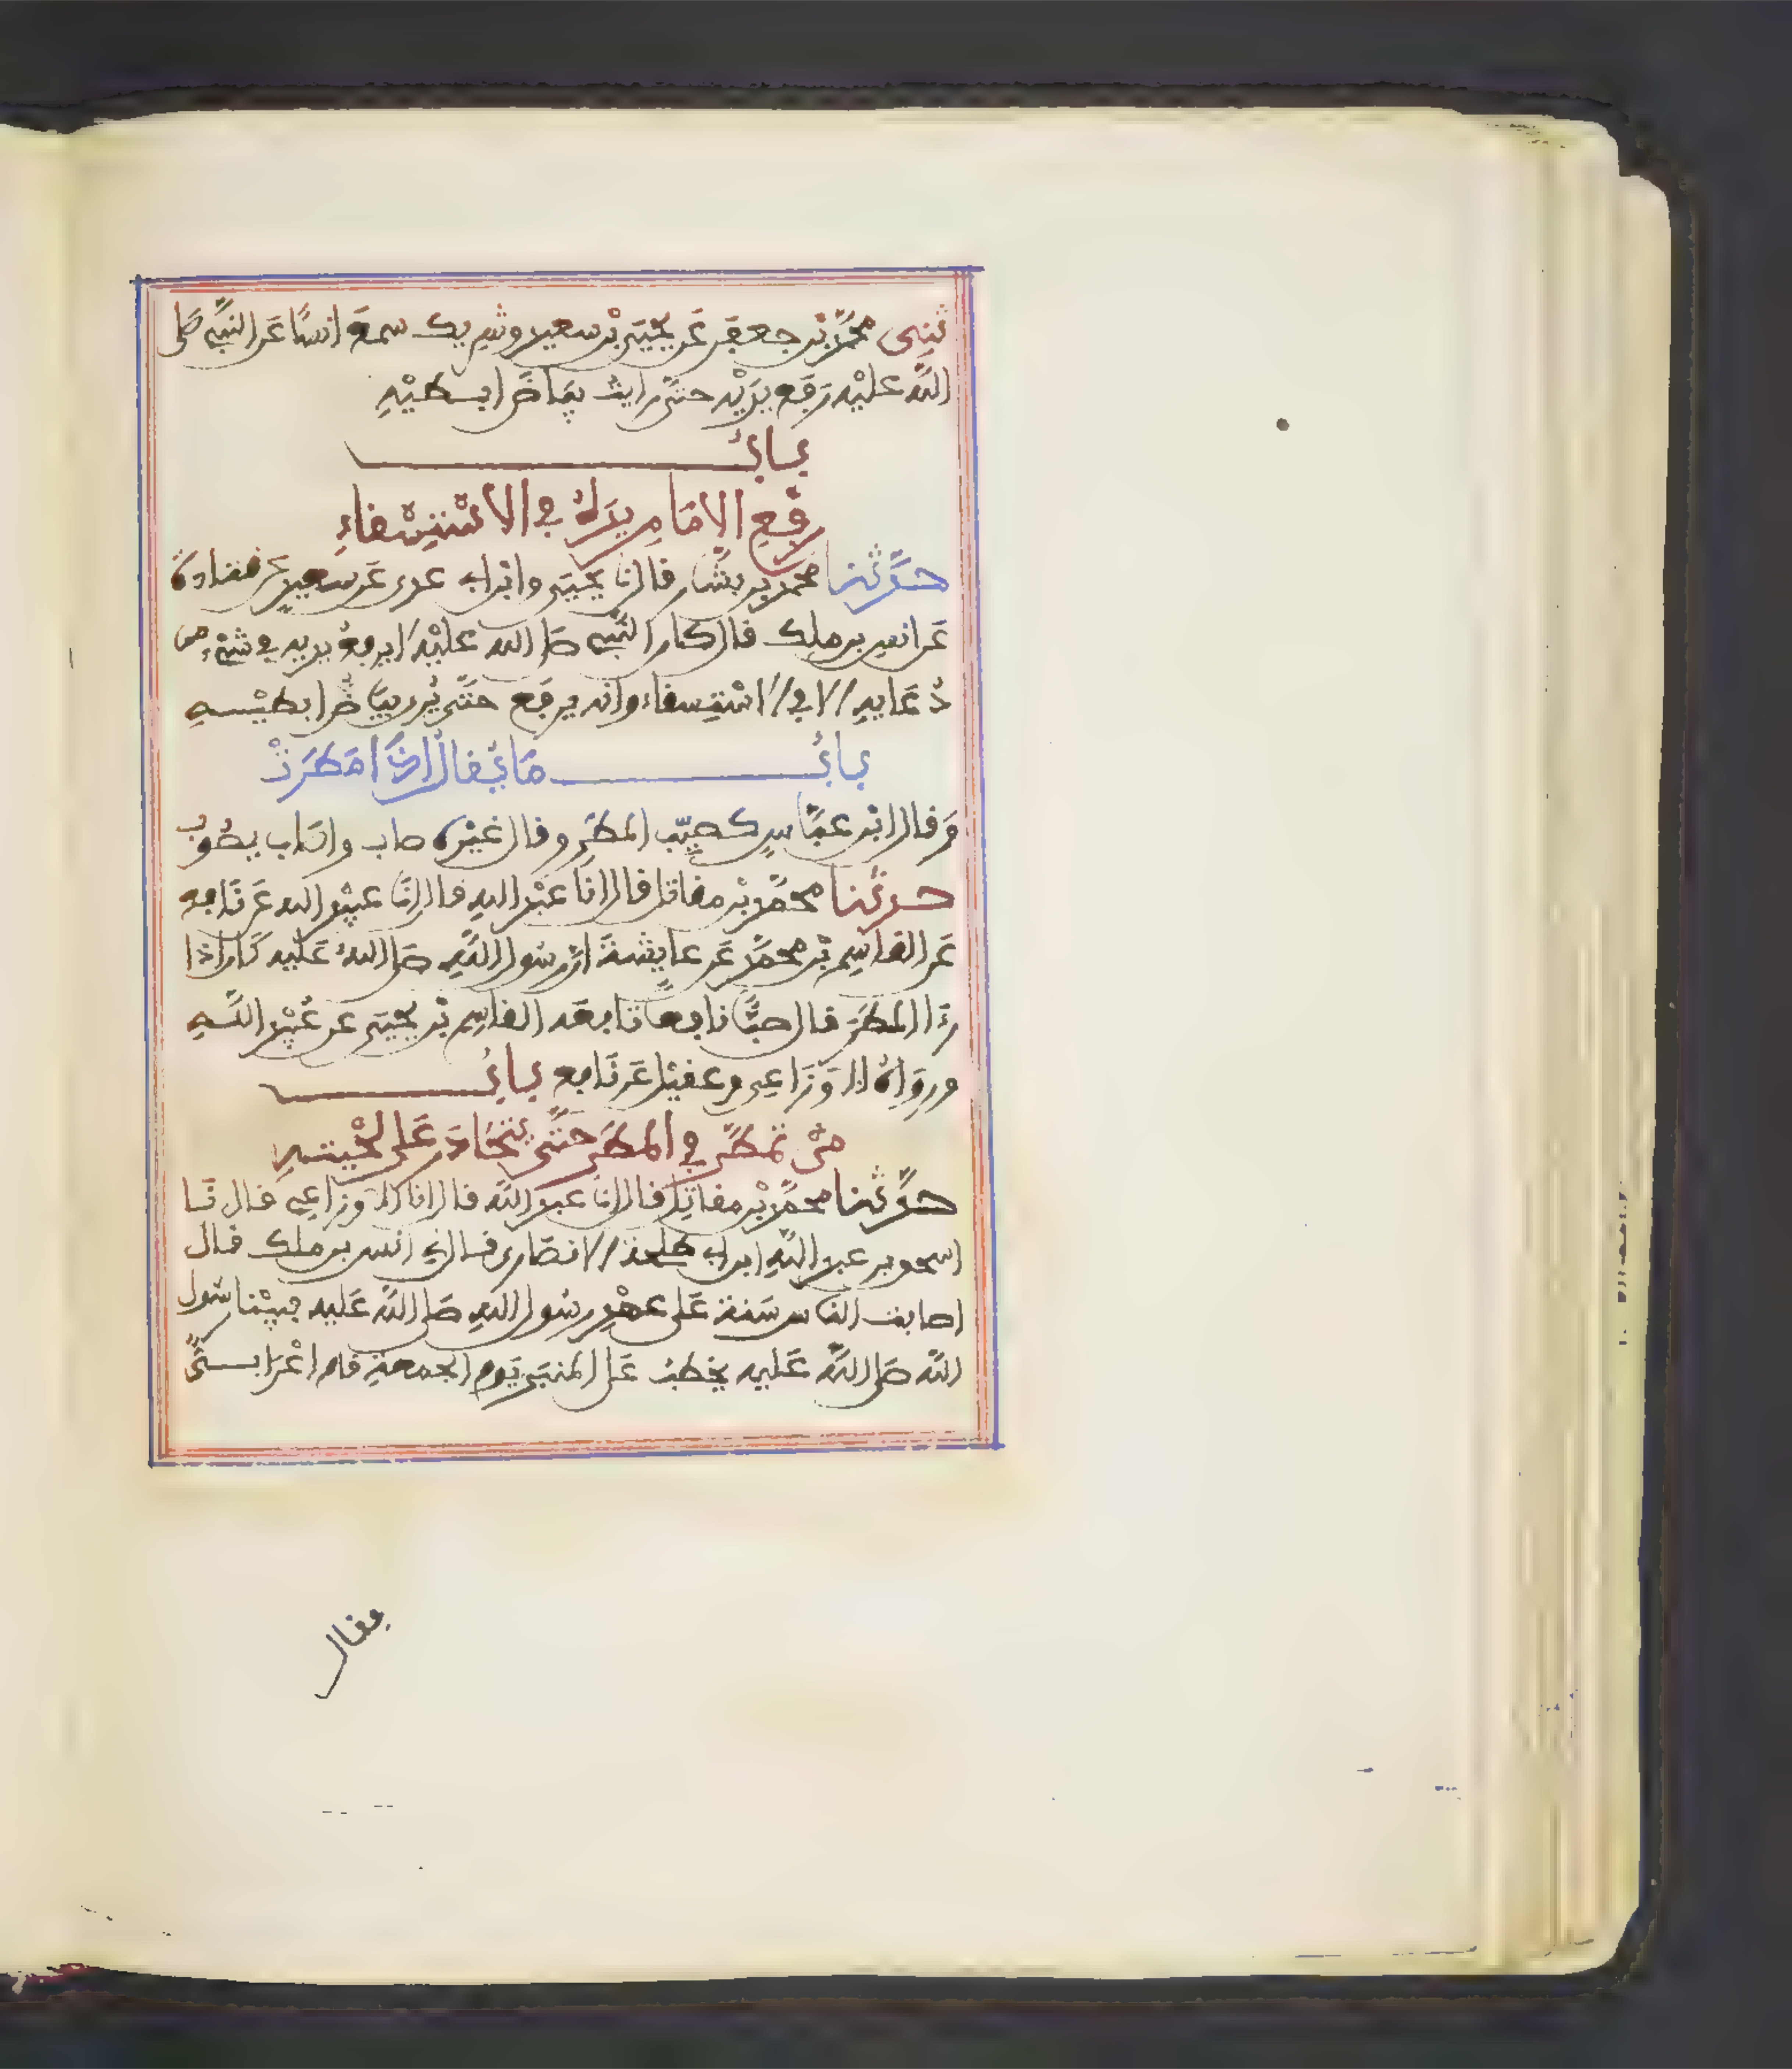 ثني محمد بن جعفر عن يحيى بن سعيد وشريك سمعا انسا عن النبي صلى
الله عليه رفع يديه حتى رايت بياض ابطيه
باب
رفع الامام يده في الاستسقاء
حدثنا محمد بن بشار قال نا يحيى وابن ابي عدي عن سعيد عن قتادة
عن انس بن ملك قال كان النبي صلى الله عليه لا يرفع يديه في شيء من
دعايه الا في الاستسقاء وانه يرفع حتى يرى بياض ابطيه
باب ما يقال اذا مطرت
وقال ابن عباس كصيب المطر وقال غيره صاب واصاب يصوب
حدثنا محمد بن مقاتل قال انا عبد الله قال انا عبيد الله عن نافع
عن القاسم بن محمد عن عايشة ان رسول الله صلى الله عليه كان اذا
رءا المطر قال صبا نافعا تابعه القاسم بن يحيى عن عبيد الله
ورواه الاوزاعي وعقيل عن نافع باب
من تمطر في المطر حتى يتحادر على لحيته
حدثنا محمد بن مقاتل قال انا عبد الله قال انا الاوزاعي قال نا
اسحق بن عبد الله ابن ابي طلحة الانصاري قال ني انس بن ملك قال
اصابت الناس سنة على عهد رسول الله صلى الله عليه فبينا رسول
الله صلى الله عليه يخطب على المنبر يوم الجمعة قام اعرابي
فقال